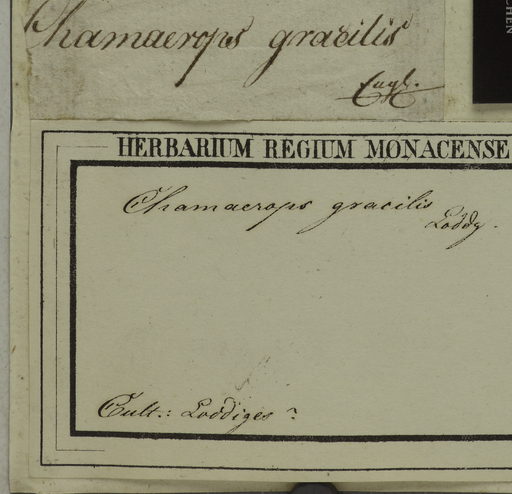 Chamaerops gracilis
HERBARIUM REGIUM MONACENSE
Chamaerops gracilis
Loddg.
Cult.: Loddiges ?